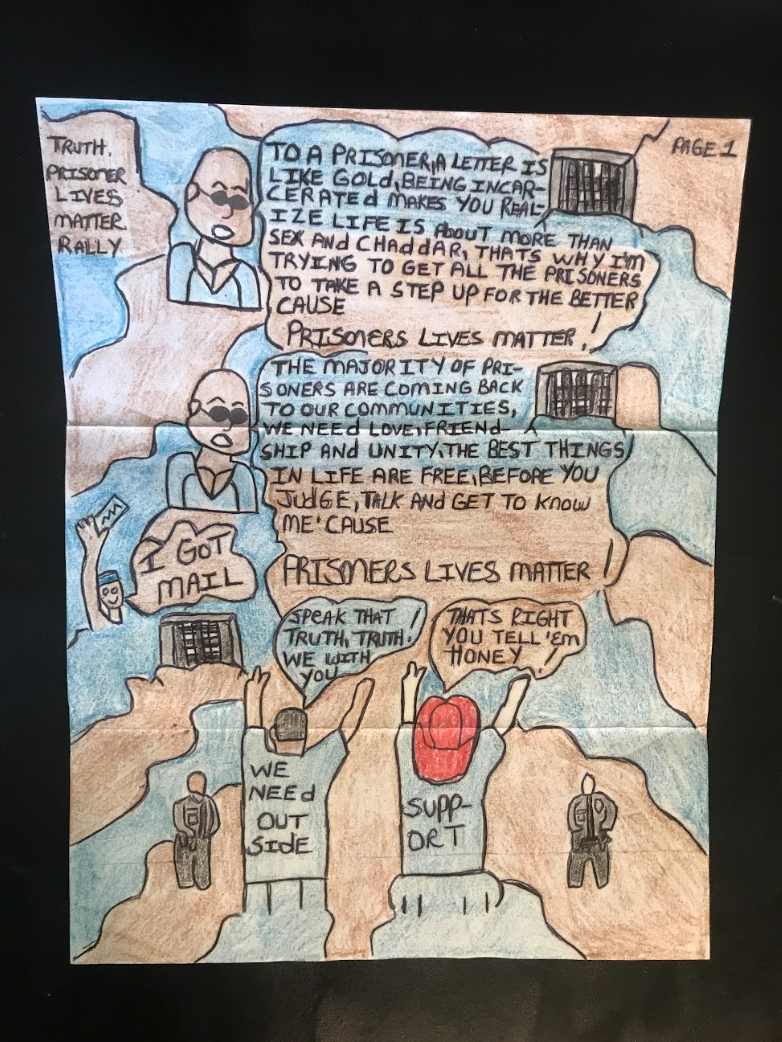 TRUTH.
PRISONER
LIVES
MATTER
RALLY
PAGE 1
TO A PRISONER, A LETTER IS
LIKE GOLD, BEING INCAR-
CERATED MAKES YOU REAL-
IZE LIFE IS ABOUT MORE THAN
SEX AND CHADDAR, THATS WHY I'M
TRYING TO GET ALL THE PRISONERS
TO TAKE A STEP UP FOR THE BETTER
CAUSE
PRISONERS LIVES MATTER!
THE MAJORITY OF PRI-
SONERS ARE COMING BACK
TO OUR COMMUNITIES,
WE NEED LOVE, FRIEND-
SHIP AND UNITY, THE BEST THINGS
IN LIFE ARE FREE, BEFORE YOU
JUDGE, TALK AND GET TO KNOW
ME 'CAUSE
PRISONERS LIVES MATTER!
I GOT
MAIL
SPEAK THAT
TRUTH, TRUTH!
WE WITH
YOU
THATS RIGHT
YOU TELL 'EM
HONEY!
WE
NEED
OUT
SIDE
SUPP-
ORT